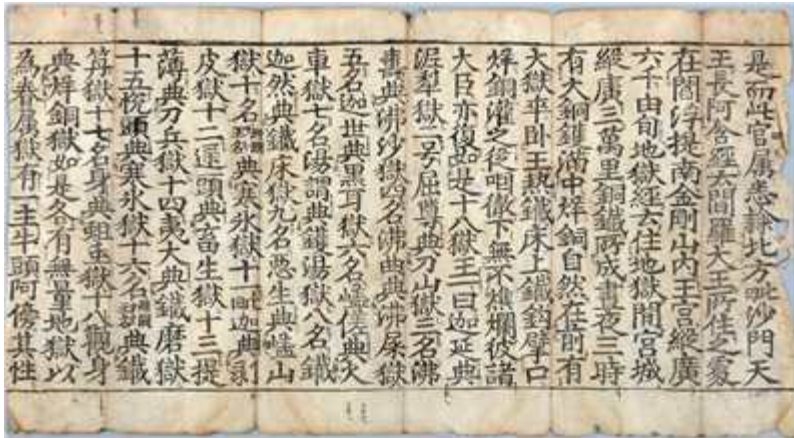 是而此官屬悉隸北方毗沙門天
王長阿含經云閻羅大王所住之處
在閻浮提南金剛山内王宮縱廣
六千由旬地獄經云住地獄間宮城
縱廣三萬里銅鐵所成晝夜三時
有大銅鑊滿中烊銅自然在前有
大獄卒卧王熱鐵床上鐵鉤擘口
烊銅灌之從咽徹下無不燋爛彼諸
大臣亦復如是十八獄王一曰迦延典
泥犁獄二号屈尊典刀山獄三名沸
壽典沸沙獄四名沸曲典沸屎獄
五名迦世典黑耳獄六名𡾰傞典火
車獄七名湯謂典鑊湯獄八名鐵
迦然典鐵床獄九名惡生典𡾰山
獄十名典寒氷獄十一毗迦典剥
皮獄十二遥頭典畜生獄十三提
薄典刀兵獄十四夷大典鐵磨獄
十五悦頭典寒氷獄十六名典鐵
獄十七名身典蛆虫獄十八觀身
典烊銅獄如是各有無量地獄以
為眷屬獄有一主牛頭阿傍其性